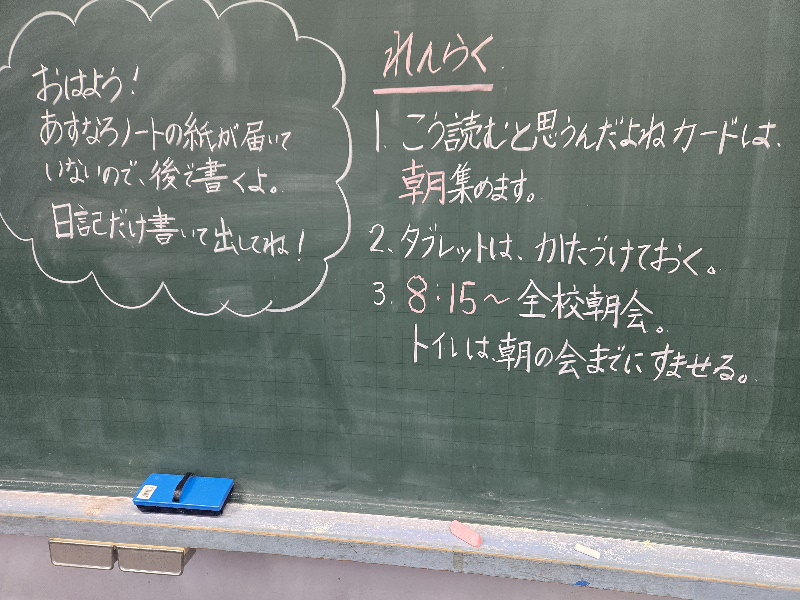 おはよう!
あすなろノートの紙が届いて
いないので、後で書くよ。
日記だけ書いて出してね!
れんらく
1. こう読むと思うんだよねカードは、
朝集めます。
2. タブレットは、かたづけておく。
3. 8:15〜全校朝会。
トイレは、朝の会までにすませる。